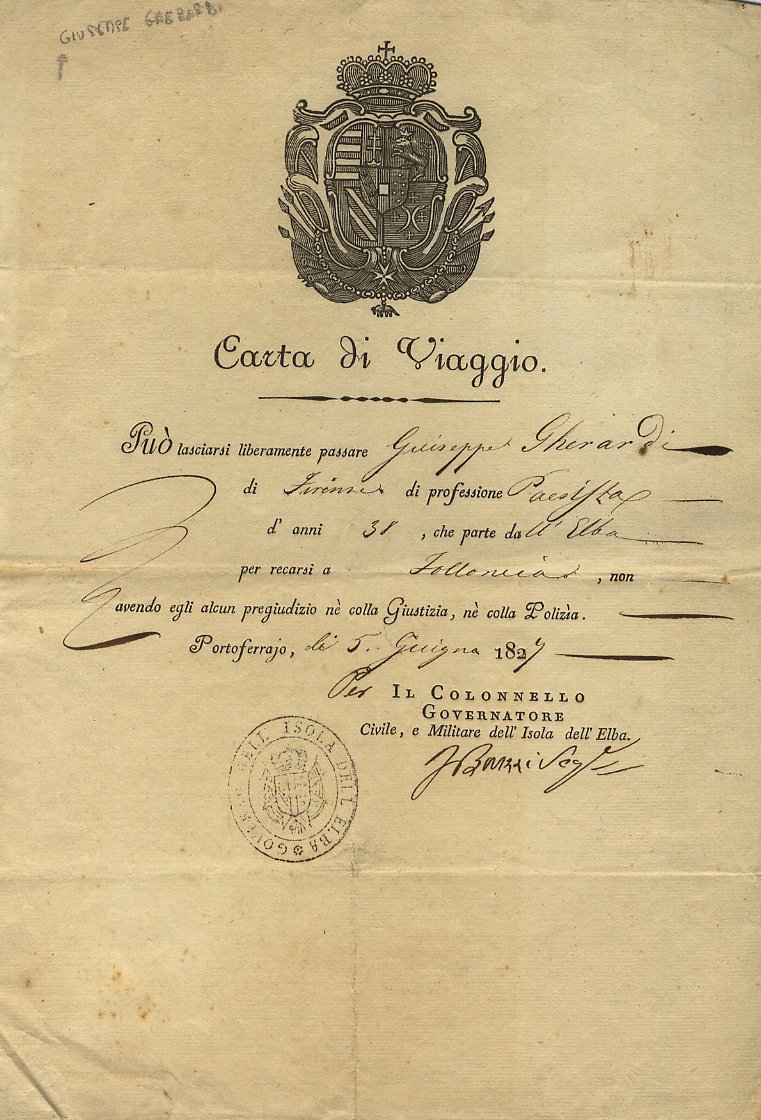 GIUSEPPE GHERARDI
Carta di Viaggio.
Può lasciarsi liberamente passare Guiseppe Gherardi
di Firenze di professione Paesista
d' anni 38, che parte dall' Elba
per recarsi a Follonica, non
avendo egli alcun pregiudizio nè colla Giustizia, nè colla Polizìa.
Portoferrajo, li 5. Guigno 1827
Per IL COLONNELLO
GOVERNATORE
Civile, e Militare dell' Isola dell' Elba.
GOVERNO DELL ISOLA DELL ELBA